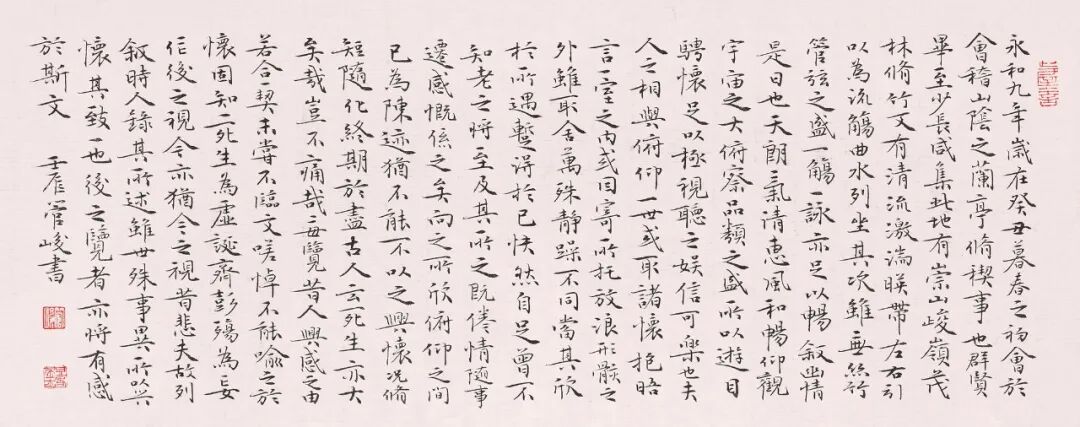 永和九年歲在癸丑暮春之初會於
會稽山陰之蘭亭脩稧事也群賢
畢至少長咸集此地有崇山峻嶺茂
林脩竹又有清流激湍暎帶左右引
以為流觴曲水列坐其次雖無絲竹
管弦之盛一觴一詠亦足以暢敘幽情
是日也天朗氣清惠風和暢仰觀
宇宙之大俯察品類之盛所以遊目
騁懷足以極視聽之娛信可樂也夫
人之相與俯仰一世或取諸懷抱晤
言一室之內或因寄所托放浪形骸之
外雖取舍萬殊靜躁不同當其欣
於所遇暫得於己快然自足曾不
知老之將至及其所之既倦情隨事
遷感慨係之矣向之所欣俯仰之間
已為陳迹猶不能不以之興懷況脩
短隨化終期於盡古人云死生亦大
矣哉豈不痛哉每覽昔人興感之由
若合契未嘗不臨文嗟悼不能喻之於
懷固知一死生為虛誕齊彭殤為妄
作後之視今亦猶今之視昔悲夫故列
敘時人錄其所述雖世殊事異所以興
懷其致一也後之覽者亦將有感
於斯文 壬寅管峻書